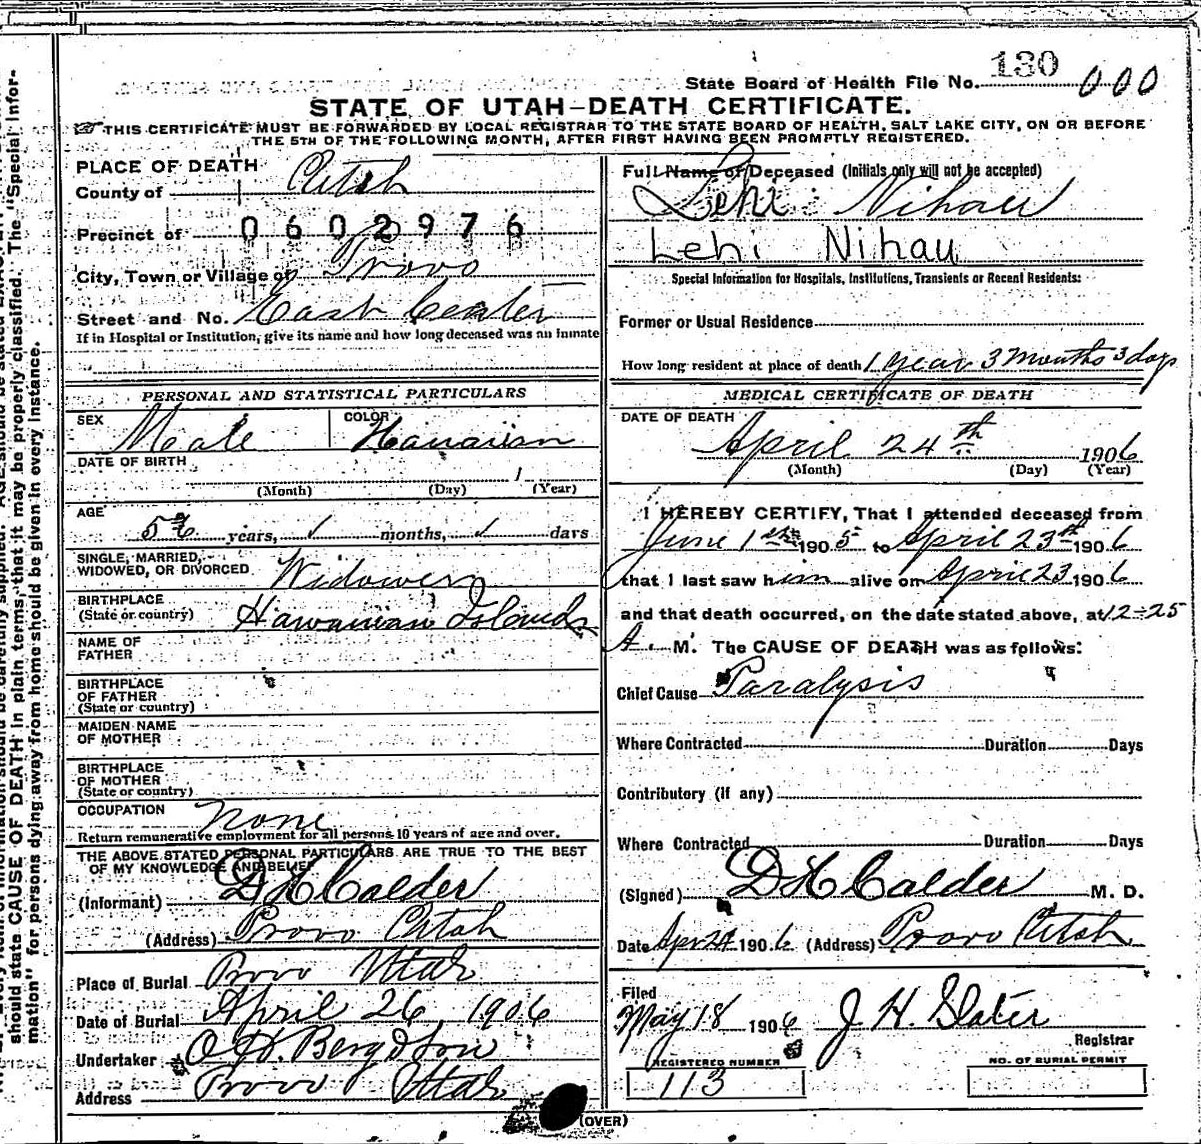 State Board of Health File No. 130 000
STATE OF UTAH—DEATH CERTIFICATE.
THIS CERTIFICATE MUST BE FORWARDED BY LOCAL REGISTRAR TO THE STATE BOARD OF HEALTH, SALT LAKE CITY, ON OR BEFORE
THE 5TH OF THE FOLLOWING MONTH, AFTER FIRST HAVING BEEN PROMPTLY REGISTERED.
PLACE OF DEATH
County of Utah
Precinct of 0602976
City, Town or Village of Provo
Street and No. East Center
If in Hospital or Institution, give its name and how long deceased was an inmate
PERSONAL AND STATISTICAL PARTICULARS
SEX Male COLOR Hawaiian
DATE OF BIRTH
1
(Month) (Day) (Year)
AGE
years, months, days
SINGLE, MARRIED,
WIDOWED, OR DIVORCED Widower
BIRTHPLACE
(State or country) Hawaiian Islands
NAME OF
FATHER
BIRTHPLACE
OF FATHER
(State or country)
MAIDEN NAME
OF MOTHER
BIRTHPLACE
OF MOTHER
(State or country)
OCCUPATION None
Return remunerative employment for all persons 10 years of age and over.
THE ABOVE STATED PERSONAL PARTICULARS ARE TRUE TO THE BEST
OF MY KNOWLEDGE AND BELIEF
(Informant) D H Calder
(Address) Provo Utah
Place of Burial Provo Utah
Date of Burial April 26 1906
Undertaker O. H. Berg & Son
Address Provo Utah
Full Name of Deceased (Initials only will not be accepted)
Lehi Nihau
Lehi Nihau
Special Information for Hospitals, Institutions, Transients or Recent Residents:
Former or Usual Residence
How long resident at place of death 1 year 3 months 3 days
MEDICAL CERTIFICATE OF DEATH
DATE OF DEATH
April 24th 1906
(Month) (Day) (Year)
I HEREBY CERTIFY, That I attended deceased from
June 1st 1905 to April 23rd 1906
that I last saw him alive on April 23 1906
and that death occurred, on the date stated above, at 12-25
A. M. The CAUSE OF DEATH was as follows:
Chief Cause Paralysis
Where Contracted Duration Days
Contributory (if any)
Where Contracted Duration Days
(Signed) D H Calder M. D.
Date Apr 24 1906 (Address) Provo Utah
Filed
May 18 1906 J. H. Slater
Registrar
REGISTERED NUMBER NO. OF BURIAL PERMIT
113
(OVER)
should state CAUSE OF DEATH in plain terms, that it may be properly classified. The "Special Infor-
mation" for persons dying away from home should be given in every instance.